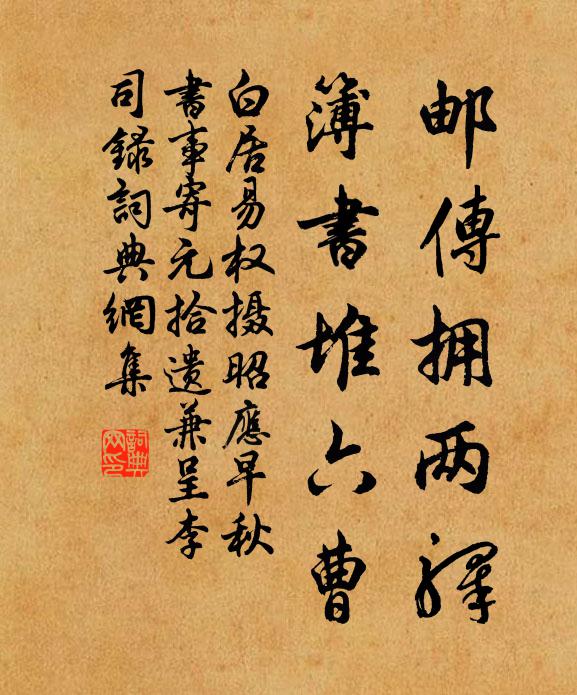 邮傳拥两驛
簿書堆六曹
白居易权摄昭應早秋
書事寄元拾遺兼呈李
司録詞典網集
詞典
网印